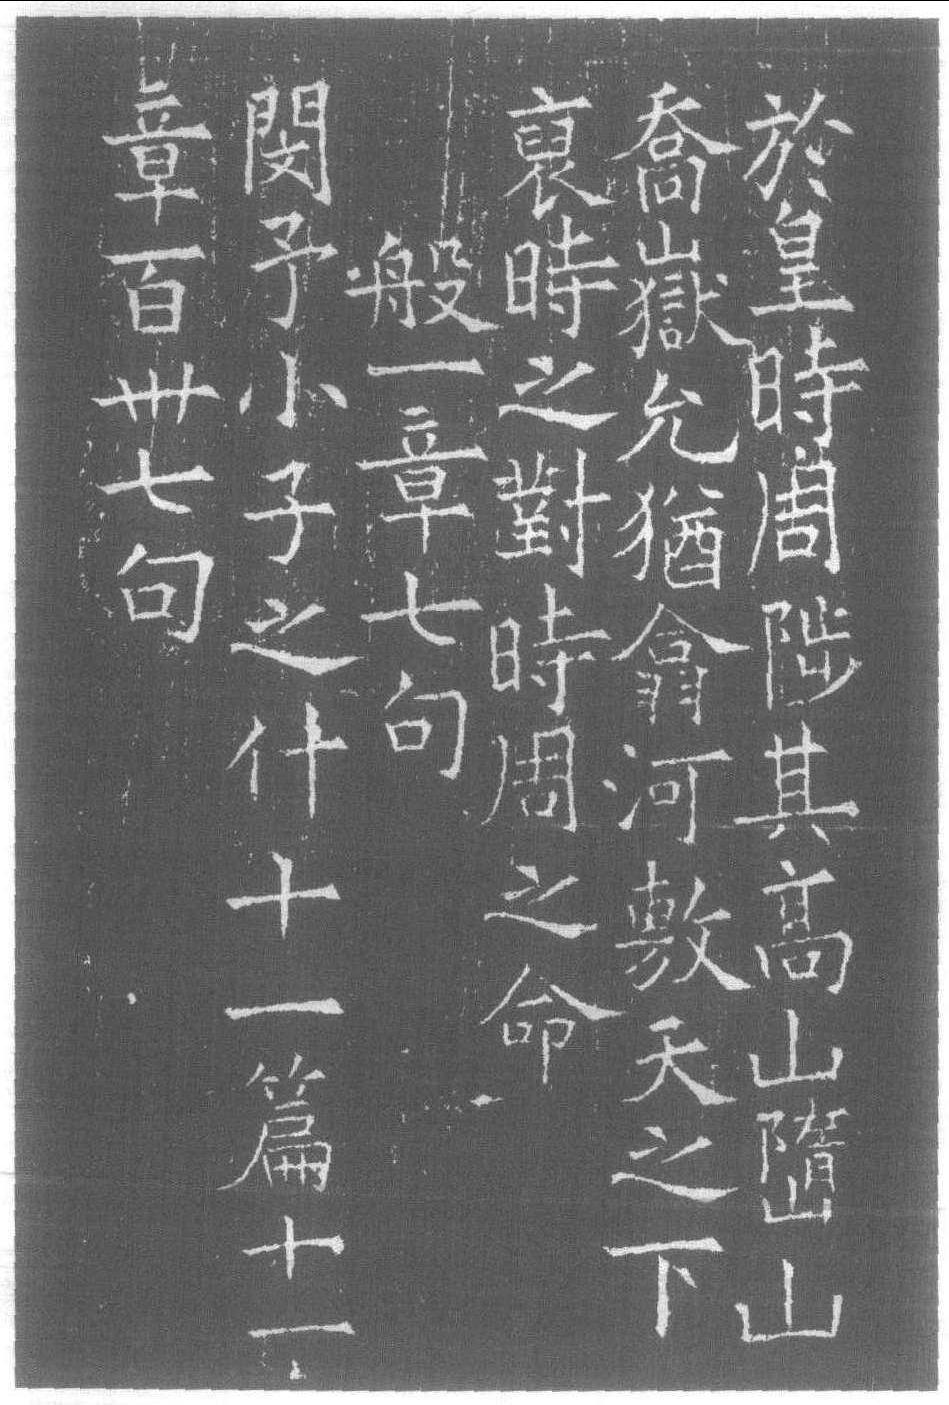 於皇時周陟其高山嶞山
喬嶽允猶翕河敷天之下
裒時之對時周之命
般一章七句
閔予小子之什十一篇十一
章百卅七句